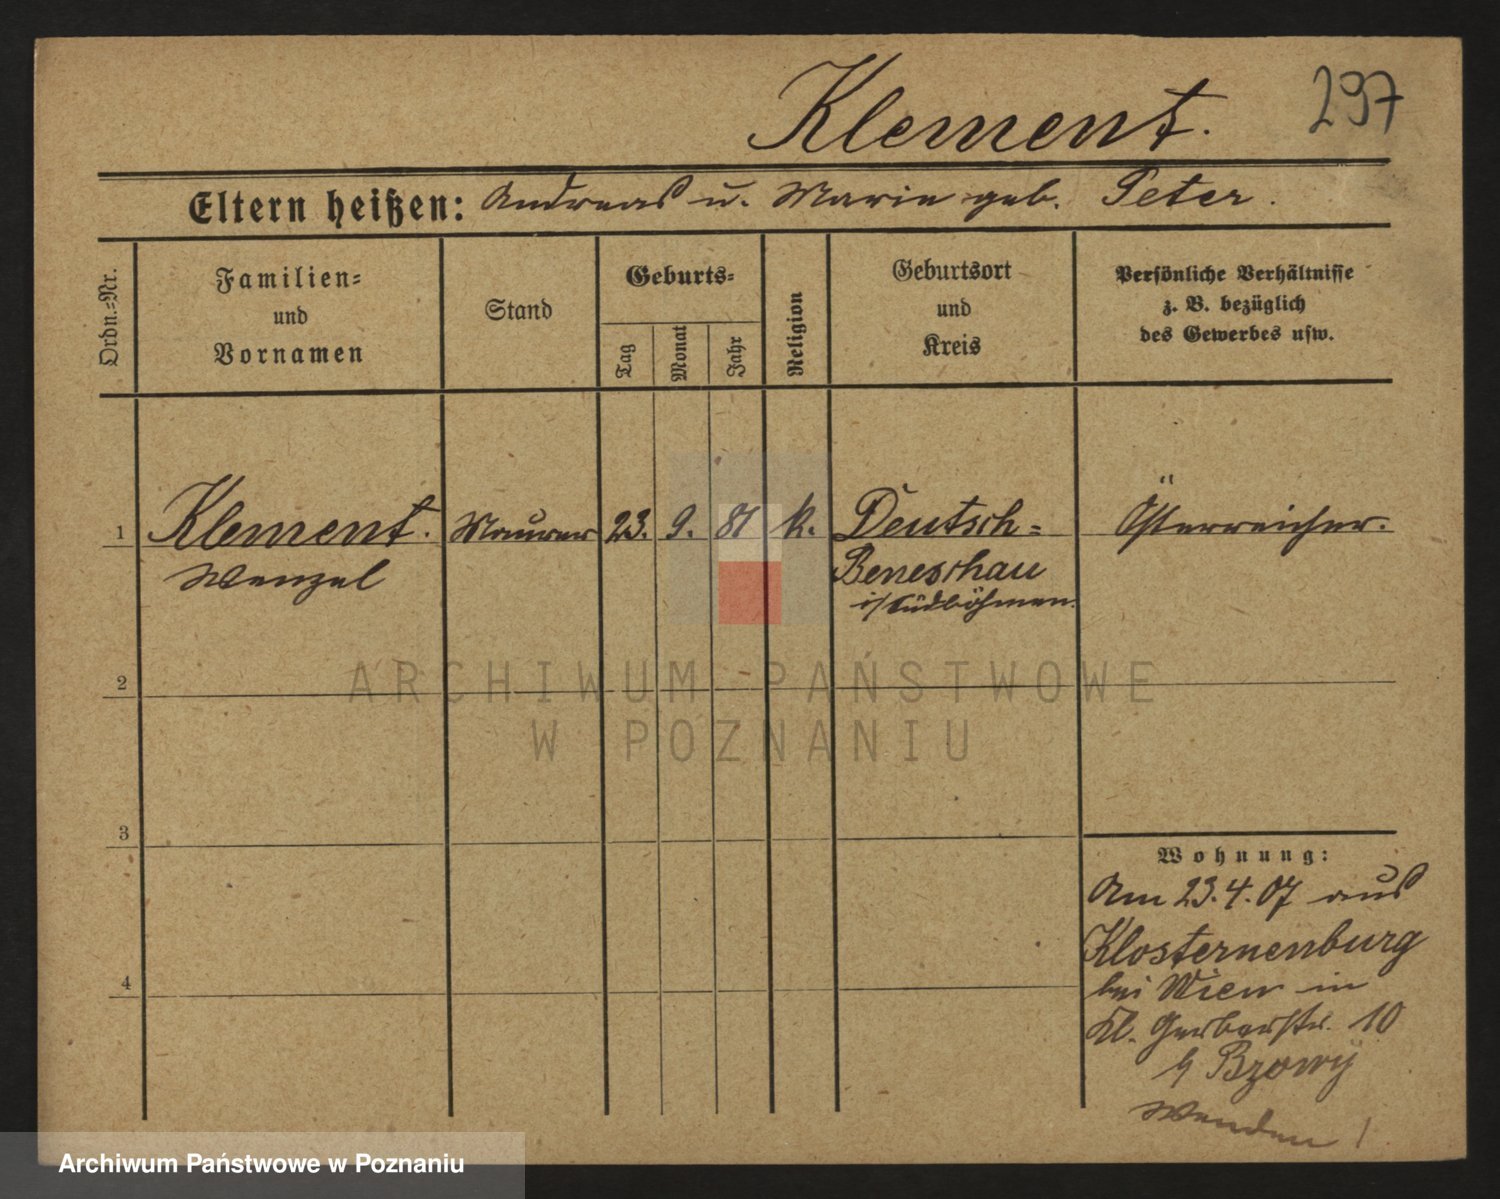 Klement.
297
Eltern heißen: Andreas u. Marie geb. Peter.
Ordn.=Nr.
Familien=
und
Vornamen
Stand
Geburts=
Tag
Monat
Jahr
Religion
Geburtsort
und
Kreis
Persönliche Verhältnisse
z. B. bezüglich
des Gewerbes usw.
1
Klement.
Wenzel
Maurer
23.
9.
81
k.
Deutsch=
Beneschau
i/Südböhmen.
Österreicher.
2
3
4
Wohnung:
Am 23.4.07 aus
Klosterneuburg
bei Wien in
Kl. Gerberstr. 10
b/ Bzowÿ
Wenden!
ARCHIWUM PAŃSTWOWE
W POZNANIU
Archiwum Państwowe w Poznaniu